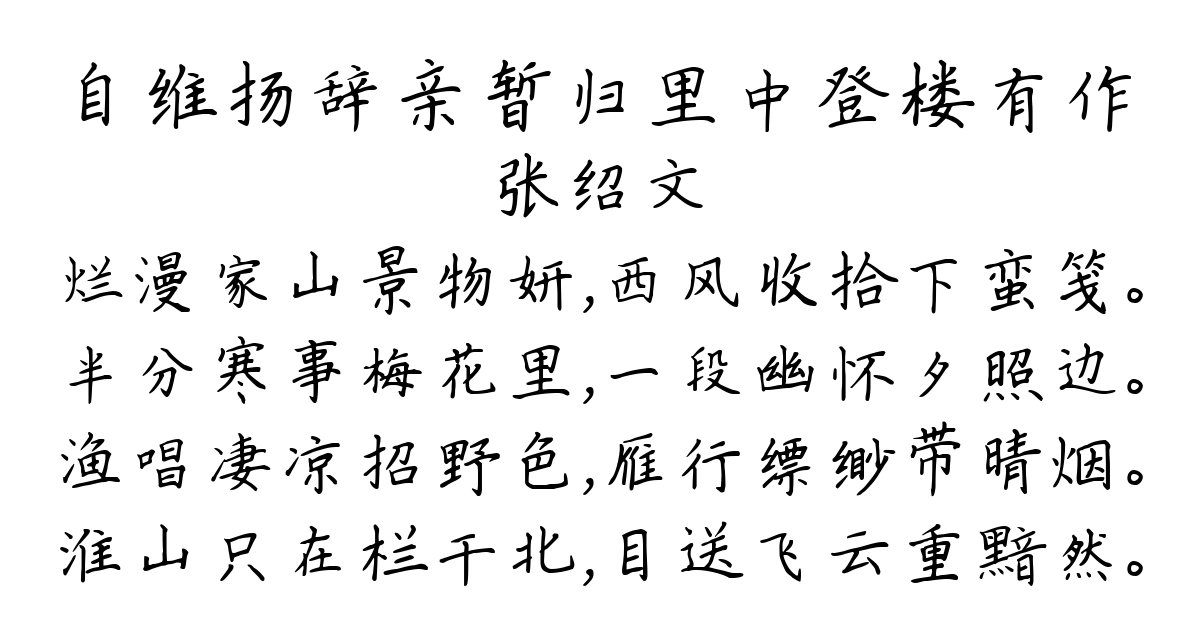 自维扬辞亲暂归里中登楼有作
张绍文
烂漫家山景物妍,西风收拾下蛮笺。
半分寒事梅花里,一段幽怀夕照边。
渔唱凄凉招野色,雁行缥缈带晴烟。
淮山只在栏干北,目送飞云重黯然。